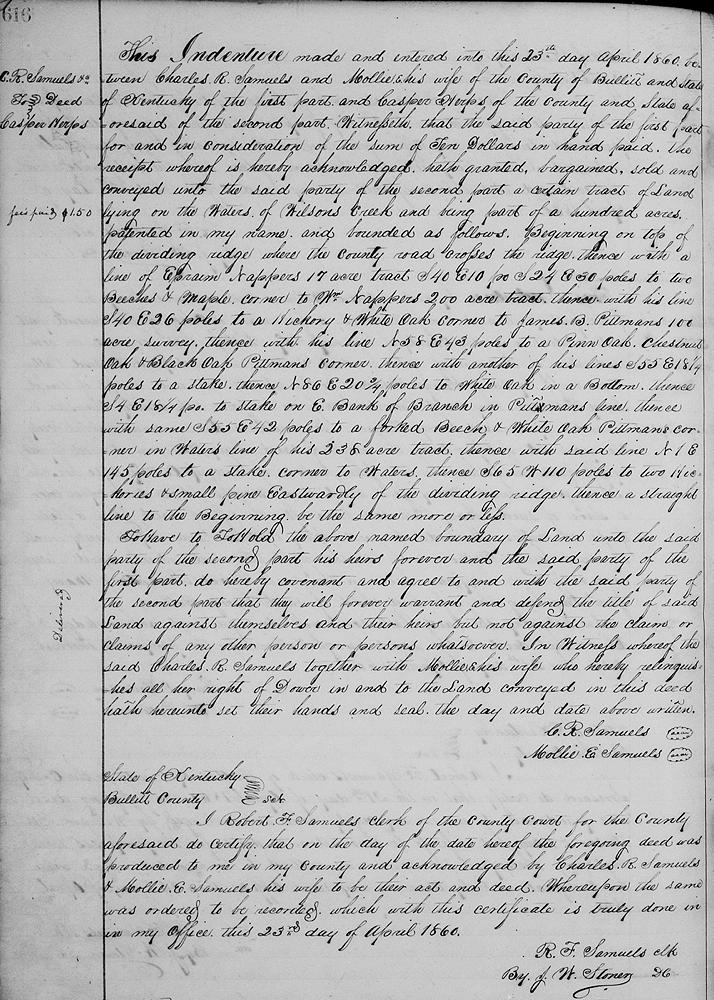 616
This Indenture made and intered into this 23th day April 1860. be-
C. R. Samuels &c
tween Charles. R. Samuels and Mollie E his wife of the County of Bullitt and State
To } Deed
of Kentucky of the first part. and Casper Herps. of the County and State af-
Casper Herps
oresaid of the second part. Witnesseth. that the said party of the first part
for and in consideration of the sum of Ten Dollars in hand paid. the
receipt whereof is hereby acknowledged. hath granted, bargained, sold and
conveyed unto the said party of the second part a certain tract of Land
fees paid $1.50
lying on the Waters. of Wilsons Creek and being part of a hundred acres.
patented in my name. and bounded as follows. Beginning on top of
the dividing ridge where the County road crosses the ridge. thence with a
line of Ephraim Nappers 17 acre tract S40 E10 po S24 E30 poles to two
Beeches & Maple. corner to Wm Nappers 200 acre tract. thence with his line
S40 E26 poles to a Hickory & White Oak corner to James. B. Pittmans 100
acre survey. thence with his line N58 E43 poles to a Pinn Oak. Chestnut
Oak & Black Oak Pittmans corner. thence with another of his lines S55 E18 1/4
poles to a stake. thence N86 E20 2/4 poles to White Oak in a Bottom. thence
S4 E18 1/4 po. to stake on E. Bank of Branch in Pittmans line. thence
with same S55 E42 poles to a forked Beech & White Oak Pittmans cor-
ner in Waters line of his 238 acre tract. thence with said line N1 E
145 poles to a stake. corner to Waters. thence S65 W110 poles to two Hic-
kories & small pine Eastwardly of the dividing ridge. thence a straight
line to the Beginning. be the same more or less.
To Have to To Hold the above named boundary of Land unto the said
party of the second part his heirs forever and the said party of the
first part. do hereby covenant and agree to and with the said party of
Delivered
the second part that they will forever warrant and defend the title of said
Land against themselves and their heirs but not against the claim or
claims of any other person or persons whatsoever. In Witness whereof the
said Charles. R. Samuels together with Mollie E his wife who hereby relinquis-
hes all her right of Dower in and to the Land conveyed in this deed
hath hereunto set their hands and seal. the day and date above written.
C. R. Samuels (seal)
Mollie E Samuels (seal)
State of Kentucky
Bullitt County } Sct
I Robert. F. Samuels clerk of the County Court for the County
aforesaid do certify. that on the day of the date hereof the foregoing deed was
produced to me in my County and acknowledged by Charles. R. Samuels
& Mollie. E. Samuels his wife to be their act and deed. Whereupon the same
was ordered to be recorded. which with this certificate is truly done in
in my Office. this 23rd day of April 1860.
R. F. Samuels clk
By. J. W. Stoner DC